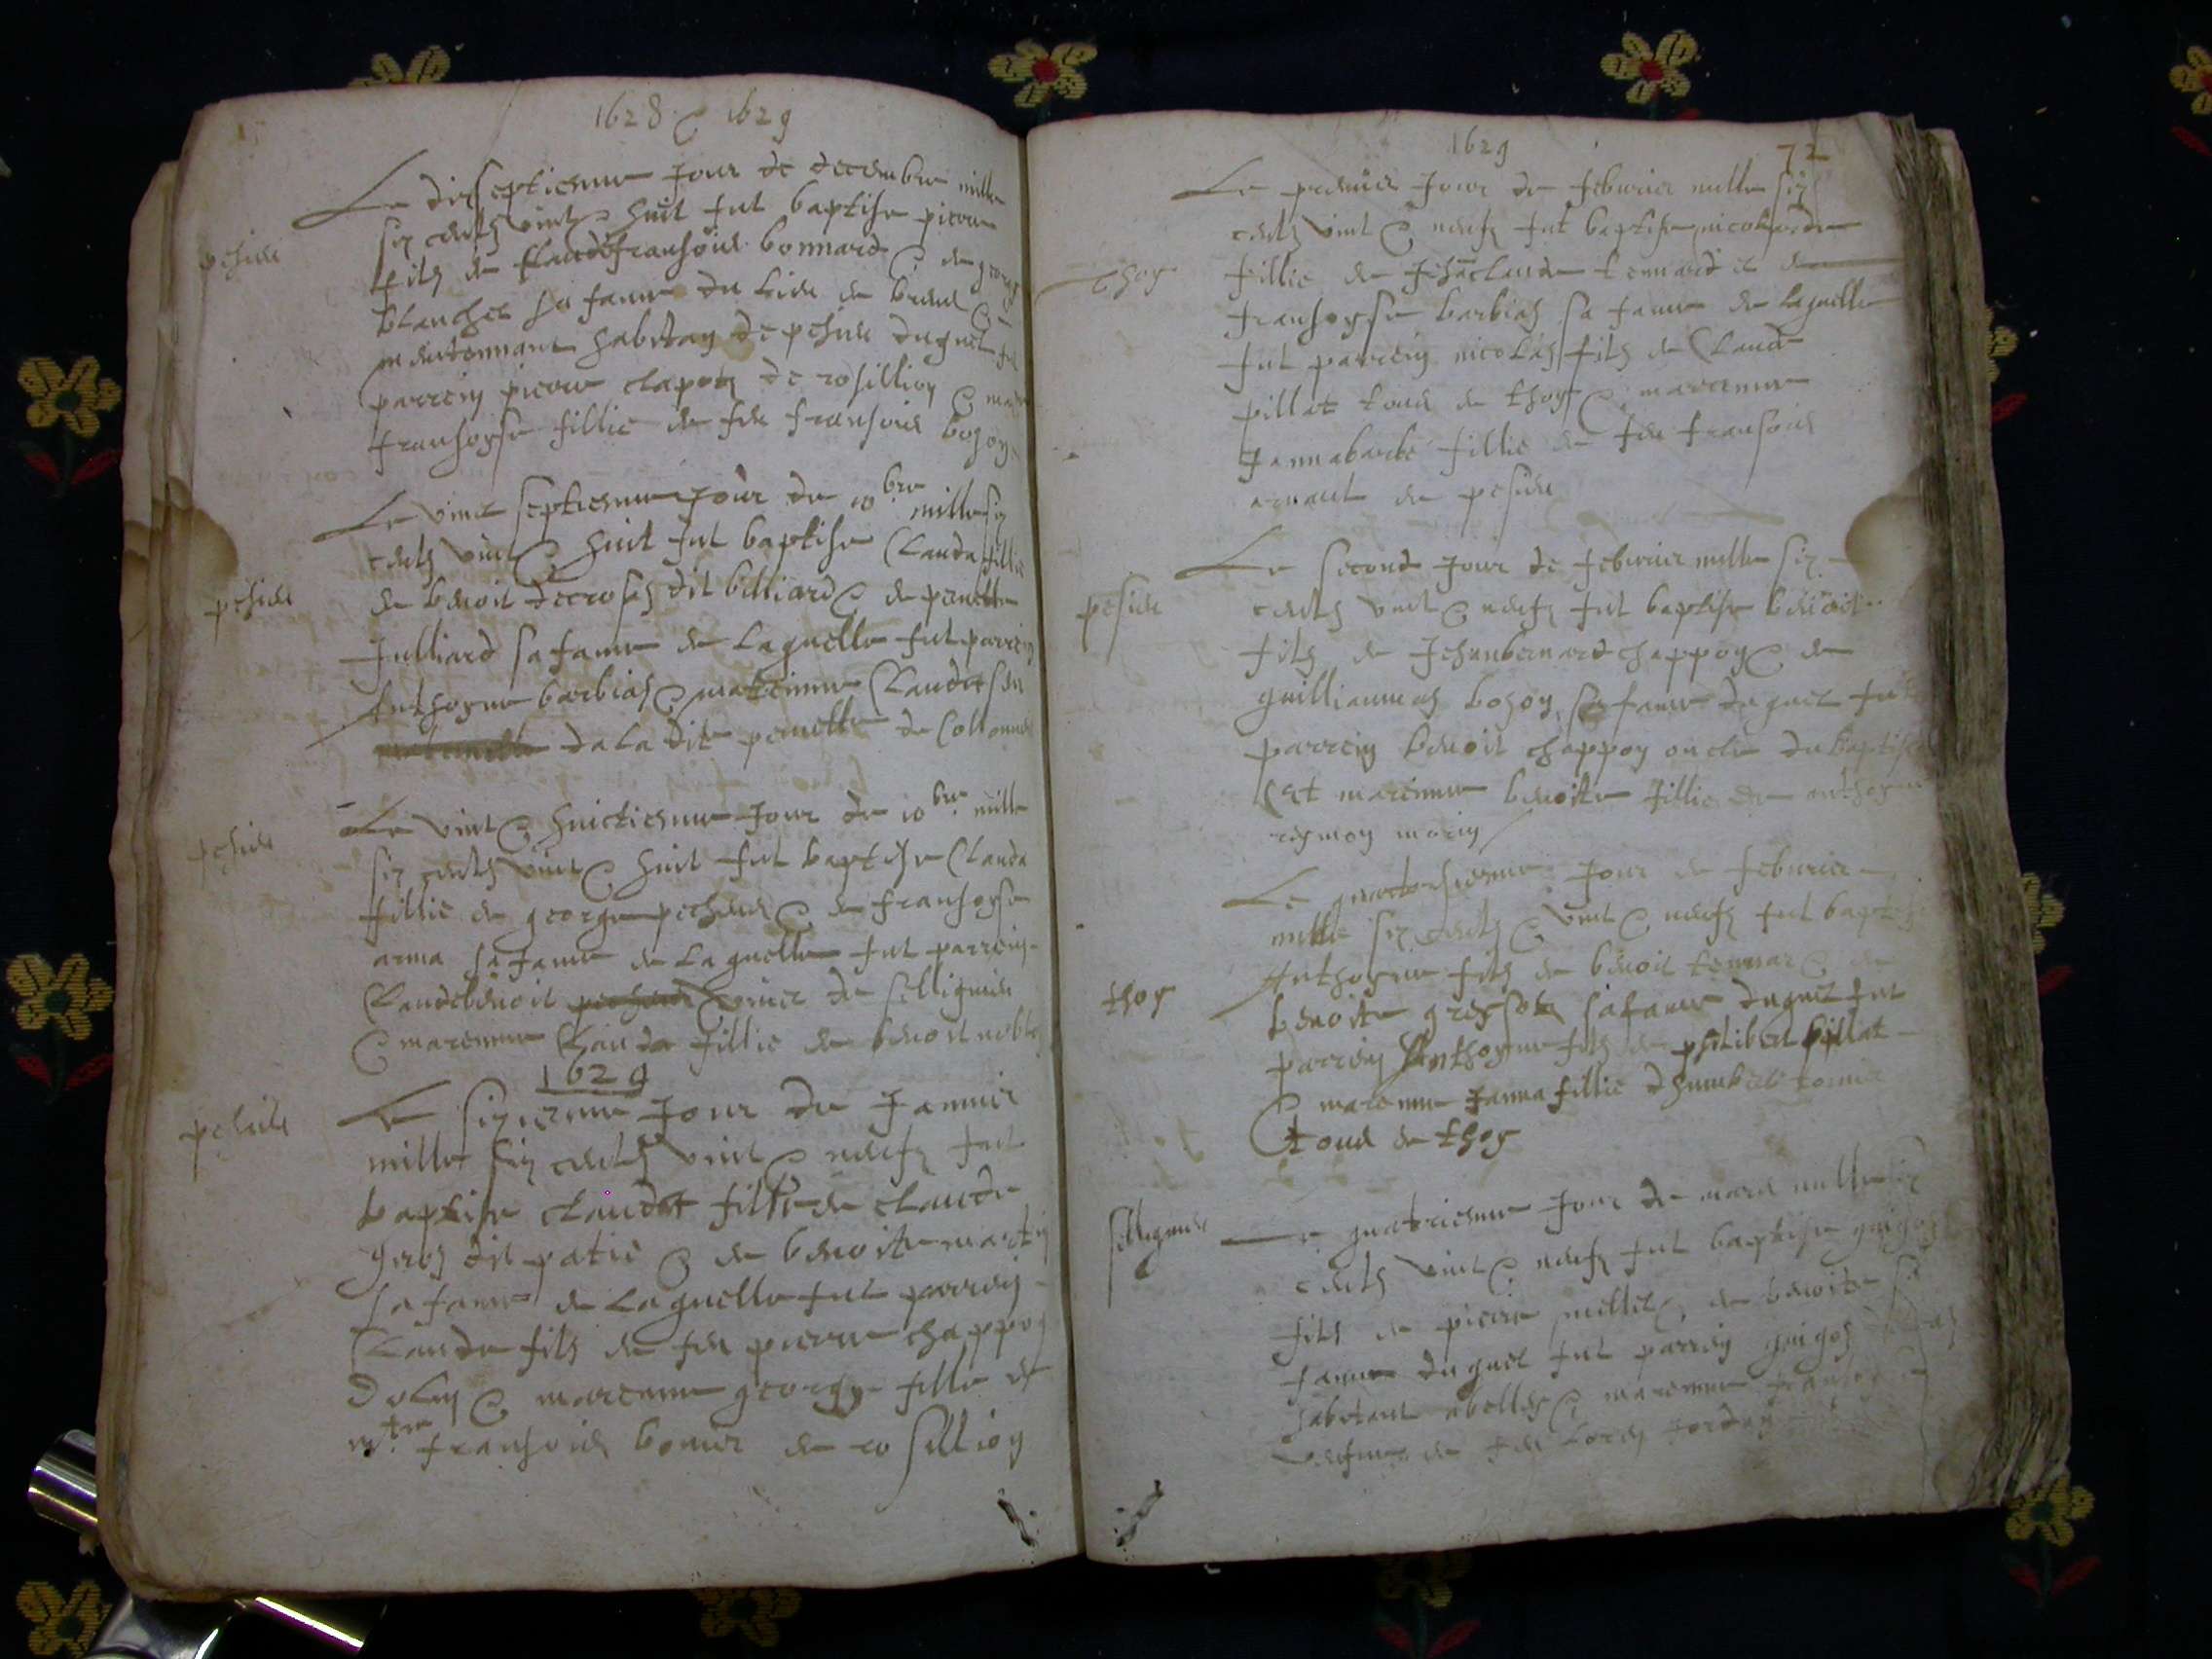 1628 & 1629
Le dixseptiesme Jour de decembre mille
six centz vint & huit fut baptise pierre
pesieu
filz de Claudefransois bonnard & de george
blanchet sa fame du lieu de &
maintennant habitan de pesieu duquel fut
parrein pierre chapotz de rosillion & mar
fransoyse fillie de feu fransois bozon
Le vint septiesme Jour de 10bre mille six
centz vint & huit fut baptise Clauda fillie
pesieu
de benoit decrosaz dit billiard & de pernette
Julliard sa fame de laquelle fut parrein
Anthoyne barbiaz & mareinne Claudaz
dela dite pernette de Collomieu
pesieu
Le vint & huictiesme Jour de 10bre mille
six centz vint & huit fut baptise Clauda
fillie de george pecheux & de fransoyse
arma sa fame de laquelle fut parrein
Claudebenoit de selligneu
& mareinne Clauda fillie de benoit
1629
pesieu
Le sixiesme Jour de Janvier
mille six centz vint & neufz fut
baptise claudaz fillie de claude
groz dit patie & de benoite martin
sa fame de laquelle fut parrein
Claude filz de feu pierre chappon
& mareinne george fille de
mtre fransois bonier de rosillion
1629
72
Le premier Jour de febvrier mille six
centz vint & neufz fut baptise nicolarde
thoy
fillie de Jehaclaude tennard et de
fransoyse barbiaz sa fame de laquelle
fut parrein nicolas filz de Claude
pillat tous de thoy & mareinne
Jannabarbe fillie de feu fransois
arnaut de pesieu
Le second Jour de febvrier mille six
pesieu
centz vint & neufz fut baptise benoit
filz de Jehanbernard chappon & de
guilliaumaz bozon sa fame duquel fut
parrein benoit chappon oncle du baptise
Et mareinne benoite fillie de anthoyne
reymon marin
Le quatorsiesme Jour de febvrier
mille six centz & vint & neufz fut baptise
thoy
Anthoyne filz de benoit tennar & de
benoite sa fame duquel fut
parrein Anthoyne filz de philibert pillat
& mareinne Janna fillie dhumbert
tous de thoy
selligneu
Le quatriesme Jour de mars mille six
centz vint & neufz fut baptise guigoz
filz de pierre millet & de benoite sa
fame duquel fut parrein guigoz
habitant abelley & mareinne fransoyse
vefve de feu